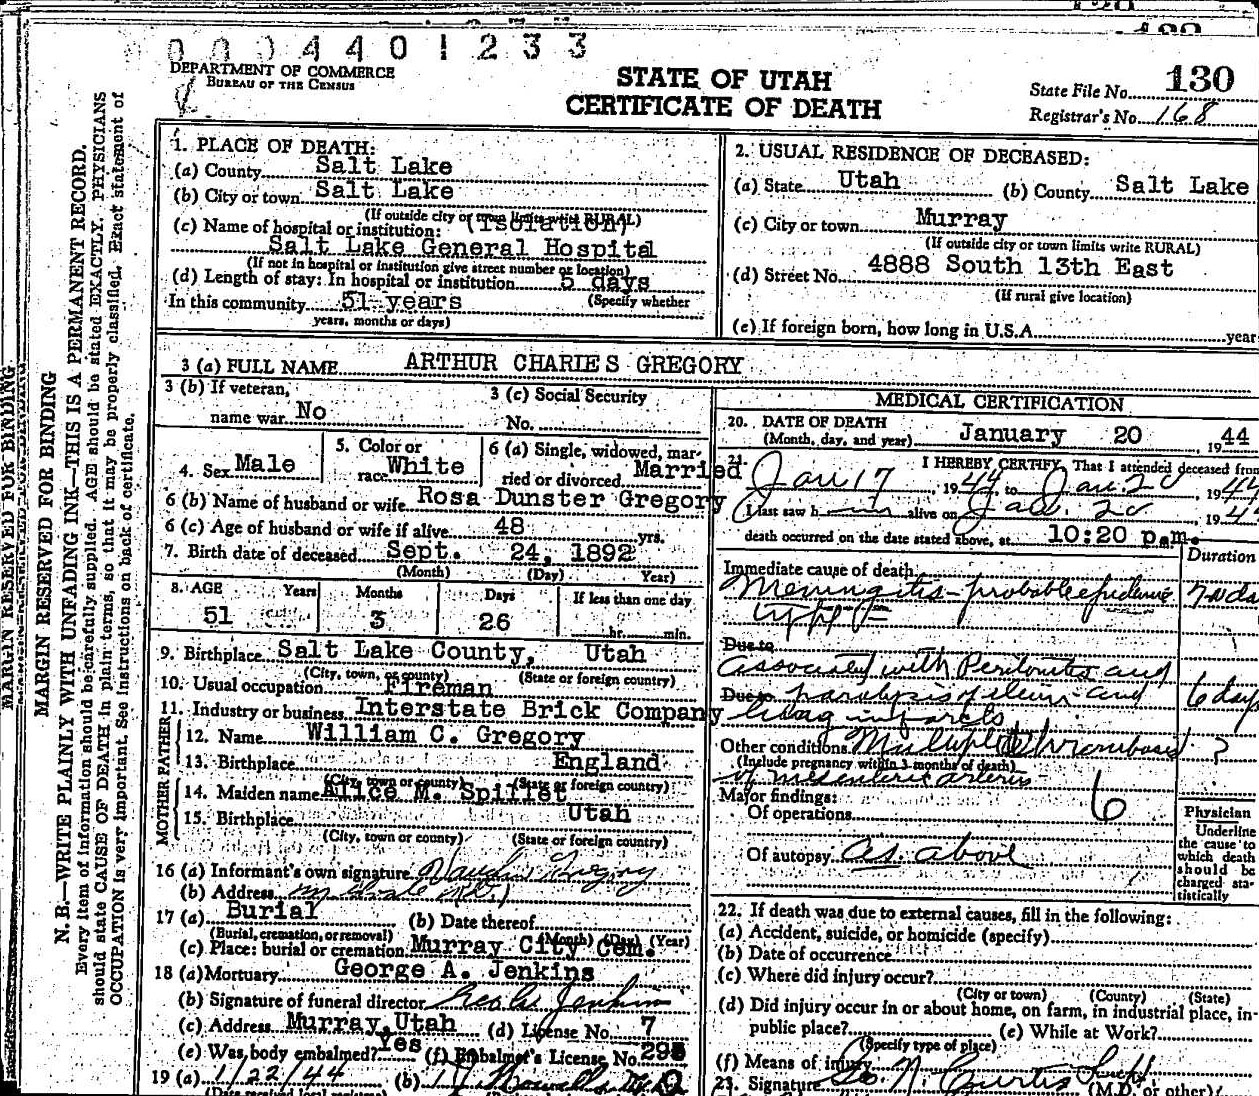 0004401233
DEPARTMENT OF COMMERCE
BUREAU OF THE CENSUS
STATE OF UTAH
CERTIFICATE OF DEATH
State File No. 130
Registrar's No. 168
MARGIN RESERVED FOR BINDING
MARGIN RESERVED FOR BINDING
N. B.—WRITE PLAINLY WITH UNFADING INK—THIS IS A PERMANENT RECORD.
Every item of information should be carefully supplied. AGE should be stated EXACTLY. PHYSICIANS
should state CAUSE OF DEATH in plain terms, so that it may be properly classified. Exact statement of
OCCUPATION is very important. See instructions on back of certificate.
1. PLACE OF DEATH:
(a) County Salt Lake
(b) City or town Salt Lake
(If outside city or town limits write RURAL)
(c) Name of hospital or institution: (Isolation)
Salt Lake General Hospital
(If not in hospital or institution give street number or location)
(d) Length of stay: In hospital or institution 5 days
In this community 51 years (Specify whether
years, months or days)
2. USUAL RESIDENCE OF DECEASED:
(a) State Utah (b) County Salt Lake
(c) City or town Murray
(If outside city or town limits write RURAL)
(d) Street No. 4888 South 13th East
(If rural give location)
(e) If foreign born, how long in U.S.A. year
3 (a) FULL NAME ARTHUR CHARIES GREGORY
3 (b) If veteran,
name war No
3 (c) Social Security
No.
4. Sex Male
5. Color or
race White
6 (a) Single, widowed, mar-
ried or divorced Married
6 (b) Name of husband or wife Rosa Dunster Gregory
6 (c) Age of husband or wife if alive 48 yrs.
7. Birth date of deceased Sept. 24, 1892
(Month) (Day) Year)
8. AGE Years Months Days If less than one day
51 3 26 hr. min.
9. Birthplace Salt Lake County, Utah
(City, town, or county) (State or foreign country)
10. Usual occupation Fireman
11. Industry or business Interstate Brick Company
FATHER
12. Name William C. Gregory
13. Birthplace England
(City, town or county) (State or foreign country)
MOTHER
14. Maiden name Alice M. Spillet
15. Birthplace Utah
(City, town or county) (State or foreign country)
16 (a) Informant's own signature Gregory
(b) Address
17 (a) Burial (b) Date thereof
(Burial, cremation, or removal) (Month) (Day) (Year)
(c) Place: burial or cremation Murray City Cem.
18 (a) Mortuary George A. Jenkins
(b) Signature of funeral director Jenkins
(c) Address Murray, Utah (d) License No. 7
(e) Was body embalmed? Yes (f) Embalmer's License No. 295
19 (a) 1/22/44 (b)
MEDICAL CERTIFICATION
20. DATE OF DEATH
(Month, day, and year) January 20 , 19 44
21. I HEREBY CERTIFY, That I attended deceased from
Jan 17 , 19 44 to Jan 20 , 19 44
I last saw h im alive on Jan. 20 , 19 4
death occurred on the date stated above, at 10:20 p.m.
Duration
Immediate cause of death
Meningitis - probable epidemic
type
Due to
associated with Peritonitis and
Due to paralysis of ileum and 6 days
lung infarcts
Other conditions Multiple thrombosis ?
(Include pregnancy within 3 months of death)
of mesenteric arteries
Major findings: 6
Of operations
Of autopsy as above
Physician
Underline
the cause to
which death
should be
charged sta-
tistically
22. If death was due to external causes, fill in the following:
(a) Accident, suicide, or homicide (specify)
(b) Date of occurrence
(c) Where did injury occur?
(City or town) (County) (State)
(d) Did injury occur in or about home, on farm, in industrial place, in-
public place? (e) While at Work?
(Specify type of place)
(f) Means of injury
23. Signature N. Curtis (M.D. or other)